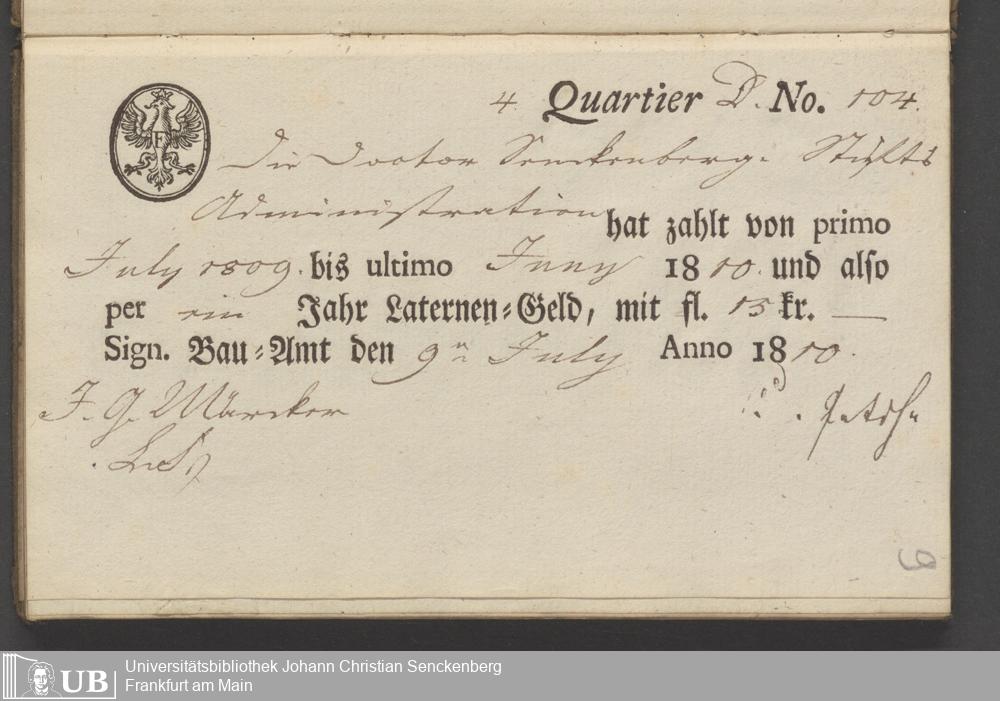 4. Quartier D. No. 104.
Die Doctor Senckenberg. Stiffts
Administration hat zahlt von primo
July 1809. bis ultimo Juny 1810. und also
per ein Jahr Laternen-Geld, mit fl. 15 kr. —
Sign. Bau-Amt den 9n July Anno 1810.
J. G. Märcker
9
UB Universitätsbibliothek Johann Christian Senckenberg
Frankfurt am Main